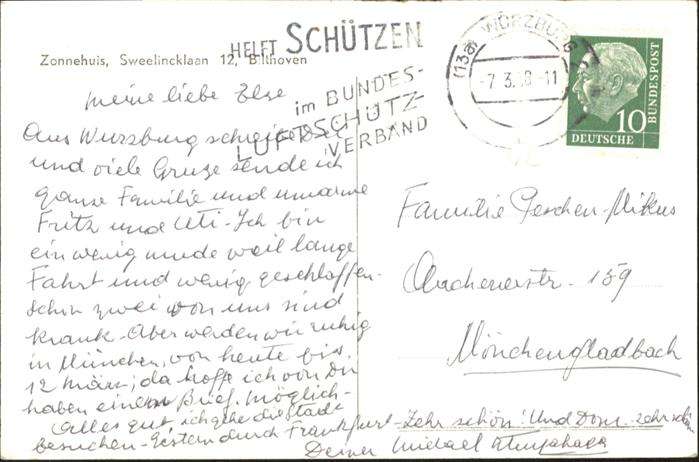 Zonnehuis, Sweelincklaan 12, Bilthoven
HELFT SCHÜTZEN
im BUNDES-
LUFTSCHUTZ-
VERBAND
(13a) WÜRZBURG
-7.3. 8-11
10
DEUTSCHE
BUNDESPOST
meine liebe Else
Aus Wurzburg schreibe
und viele Gruze sende ich
ganze Familie und umarme
Fritz und Uti - Ich bin
ein wenig mude weil lange
Fahrt und wenig geschlaffen -
schon zwei von uns sind
krank. Aber werden wir ruhig
in München, von heute bis
12 März; da hoffe ich von Dir
haben einem Brief. Möglich -
Alles gut, ich gehe die Stadt
besuchen - Gestern durch Frankfurt - Zehr schön! Und Dom - zehr schön
Deiner Michael
Familie Peschen-Mikus
Aachenerstr. 159
Mönchengladbach